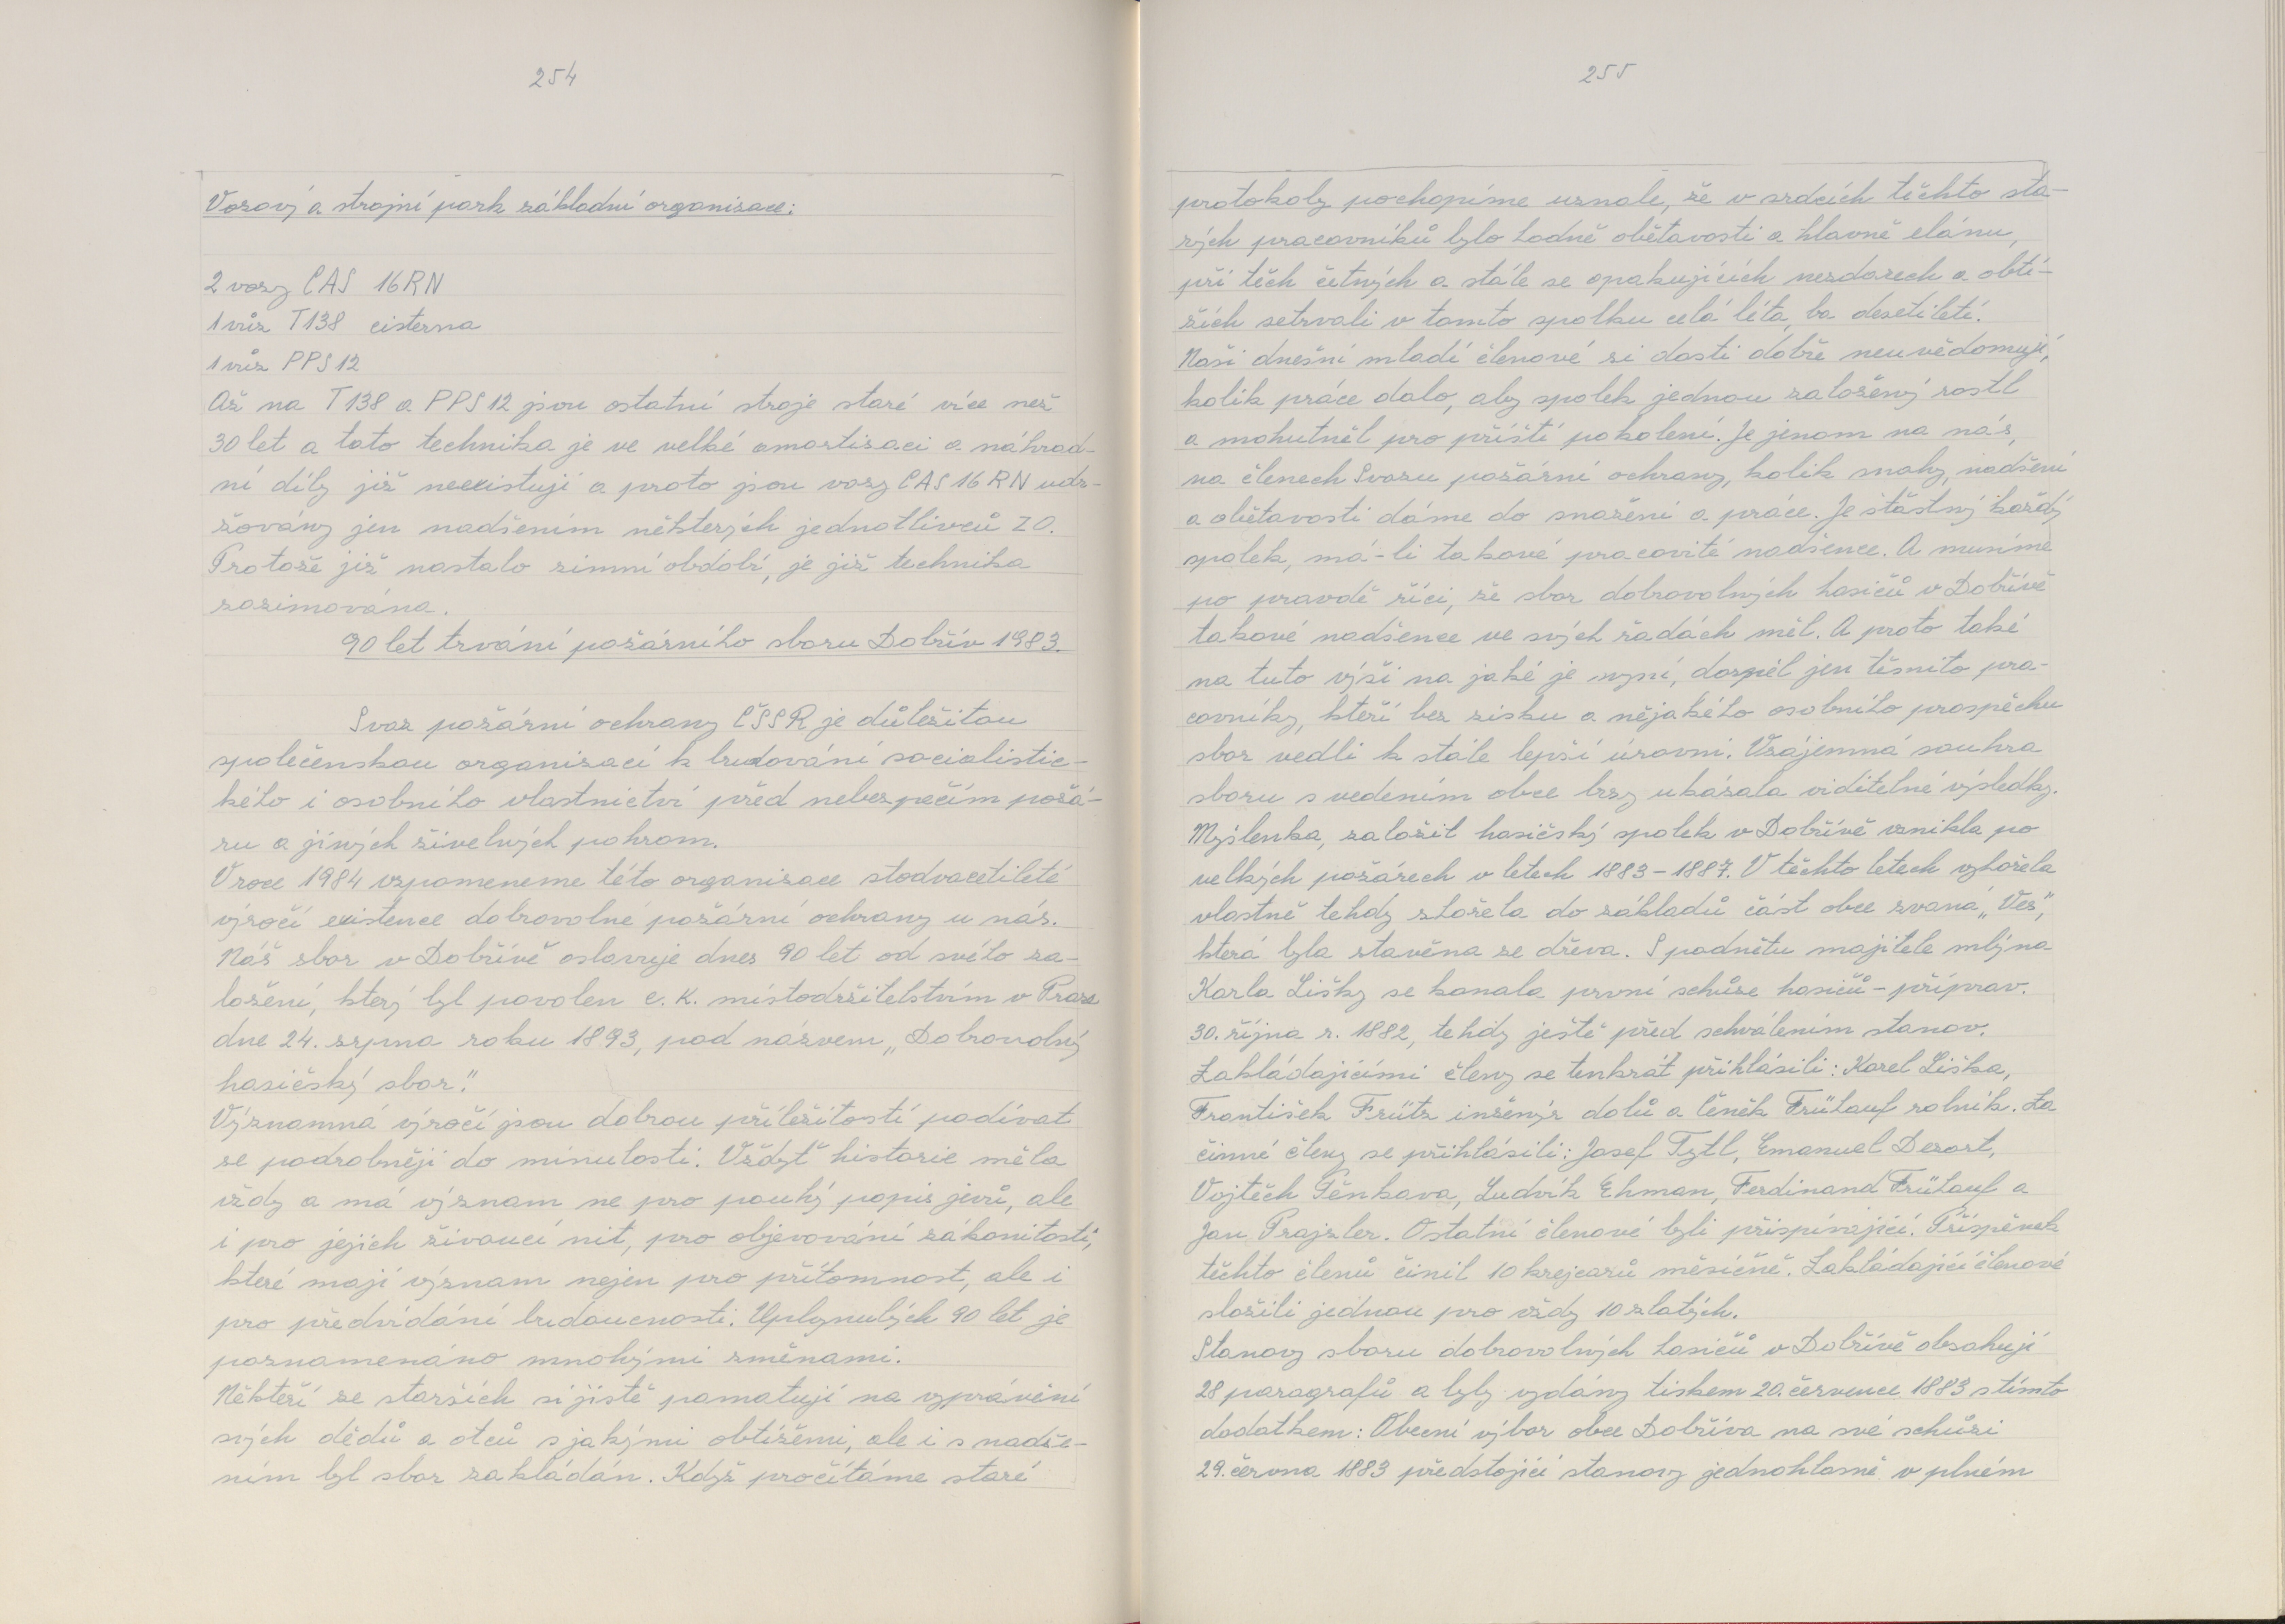 254
Vozový a strojní park základní organisace:
2 vozy CAS 16RN
1 vůz T138 cisterna
1 vůz PPS 12
Až na T138 a PPS 12 jsou ostatní stroje staré více než
30 let a tato technika je ve velké amortisaci a náhrad-
ní díly již neexistují a proto jsou vozy CAS 16 RN udr-
žovány jen nadšením některých jednotlivců ZO.
Protože již nastalo zimní období, je již technika
zazimována.
90 let trvání požárního sboru Dobřív 1983.
Svaz požární ochrany ČSSR je důležitou
společenskou organisací k budování socialistic-
kého i osobního vlastnictví před nebezpečím požá-
ru a jiných živelných pohrom.
V roce 1984 vzpomeneme této organisace stodvacetileté
výročí existence dobrovolné požární ochrany u nás.
Náš sbor v Dobřívě oslavuje dnes 90 let od svého za-
ložení, který byl povolen c. k. místodržitelstvím v Praze
dne 24. srpna roku 1893, pod názvem „Dobrovolný
hasičský sbor."
Významná výročí jsou dobrou příležitostí podívat
se podrobněji do minulosti. Vždyť historie měla
vždy a má význam ne pro pouhý popis jevů, ale
i pro jejich živoucí nit, pro objevování zákonitostí,
které mají význam nejen pro přítomnost, ale i
pro předvídání budoucnosti. Uplynulých 90 let je
poznamenáno mnohými změnami.
Někteří ze starších si jistě pamatují na vyprávění
svých dědů a otců s jakými obtížemi, ale i s nadše-
ním byl sbor zakládán. Když pročítáme staré
255
protokoly pochopíme uznale, že v srdcích těchto sta-
rých pracovníků bylo hodně obětavosti a hlavně elánu,
při těch četných a stále se opakujících nezdarech a obtí-
žích setrvali v tomto spolku celá léta, ba desetiletí.
Naši dnešní mladí členové si dosti dobře neuvědomují,
kolik práce dalo, aby spolek jednou založený rostl
a mohutněl pro příští pokolení. Je jenom na nás,
na členech Svazu požární ochrany, kolik snahy, nadšení
a obětavosti dáme do snažení a práce. Je šťastný každý
spolek, má-li takové pracovité nadšence. A musíme
po pravdě říci, že sbor dobrovolných hasičů v Dobřívě
takové nadšence ve svých řadách měl. A proto také
na tuto výši na jaké je nyní, dospěl jen těmito pra-
covníky, kteří bez zisku a nějakého osobního prospěchu
sbor vedli k stále lepší úrovni. Vzájemná souhra
sboru s vedením obce brzy ukázala viditelné výsledky.
Myšlenka, založit hasičský spolek v Dobřívě vznikla po
velkých požárech v letech 1883-1887. V těchto letech vyhořela
vlastně tehdy shořela do základů část obce zvaná „Ves",
která byla stavěna ze dřeva. S podnětu majitele mlýna
Karla Lišky se konala první schůze hasičů - příprav.
30. října r. 1882, tehdy ještě před schválením stanov.
Zakládajícími členy se tenkrát přihlásili: Karel Liška,
František Früts inženýr dolů a Čeněk Frühauf rolník. Za
činné členy se přihlásili: Josef Tytl, Emanuel Dezort,
Vojtěch Pěnkava, Ludvík Ehman, Ferdinand Frühauf a
Jan Prajzler. Ostatní členové byli přispívající. Příspěvek
těchto členů činil 10 krejcarů měsíčně. Zakládající členové
složili jednou pro vždy 10 zlatých.
Stanovy sboru dobrovolných hasičů v Dobřívě obsahují
28 paragrafů a byly vydány tiskem 20. července 1883 s tímto
dodatkem: Obecní výbor obce Dobříva na své schůzi
29. června 1883 předstojící stanovy jednohlasně v plném